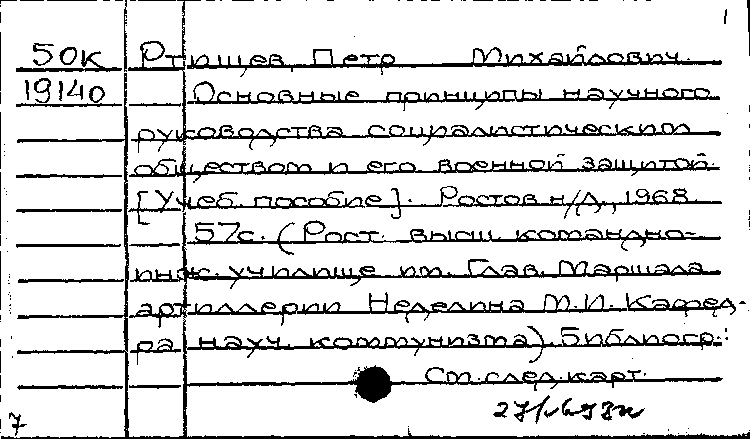 1
50к Ртищев, Петр Михайлович.
19140 Основные принципы научного
руководства социалистическим
обществом и его военной защитой.
[Учеб. пособие]. Ростов н/Д., 1968.
57с. (Рост. высш. командно-
инж. училище им. Глав. Маршала
артиллерии Неделина М.И. Кафед-
ра науч. коммунизма). Библиогр.:
См. след. карт.
7